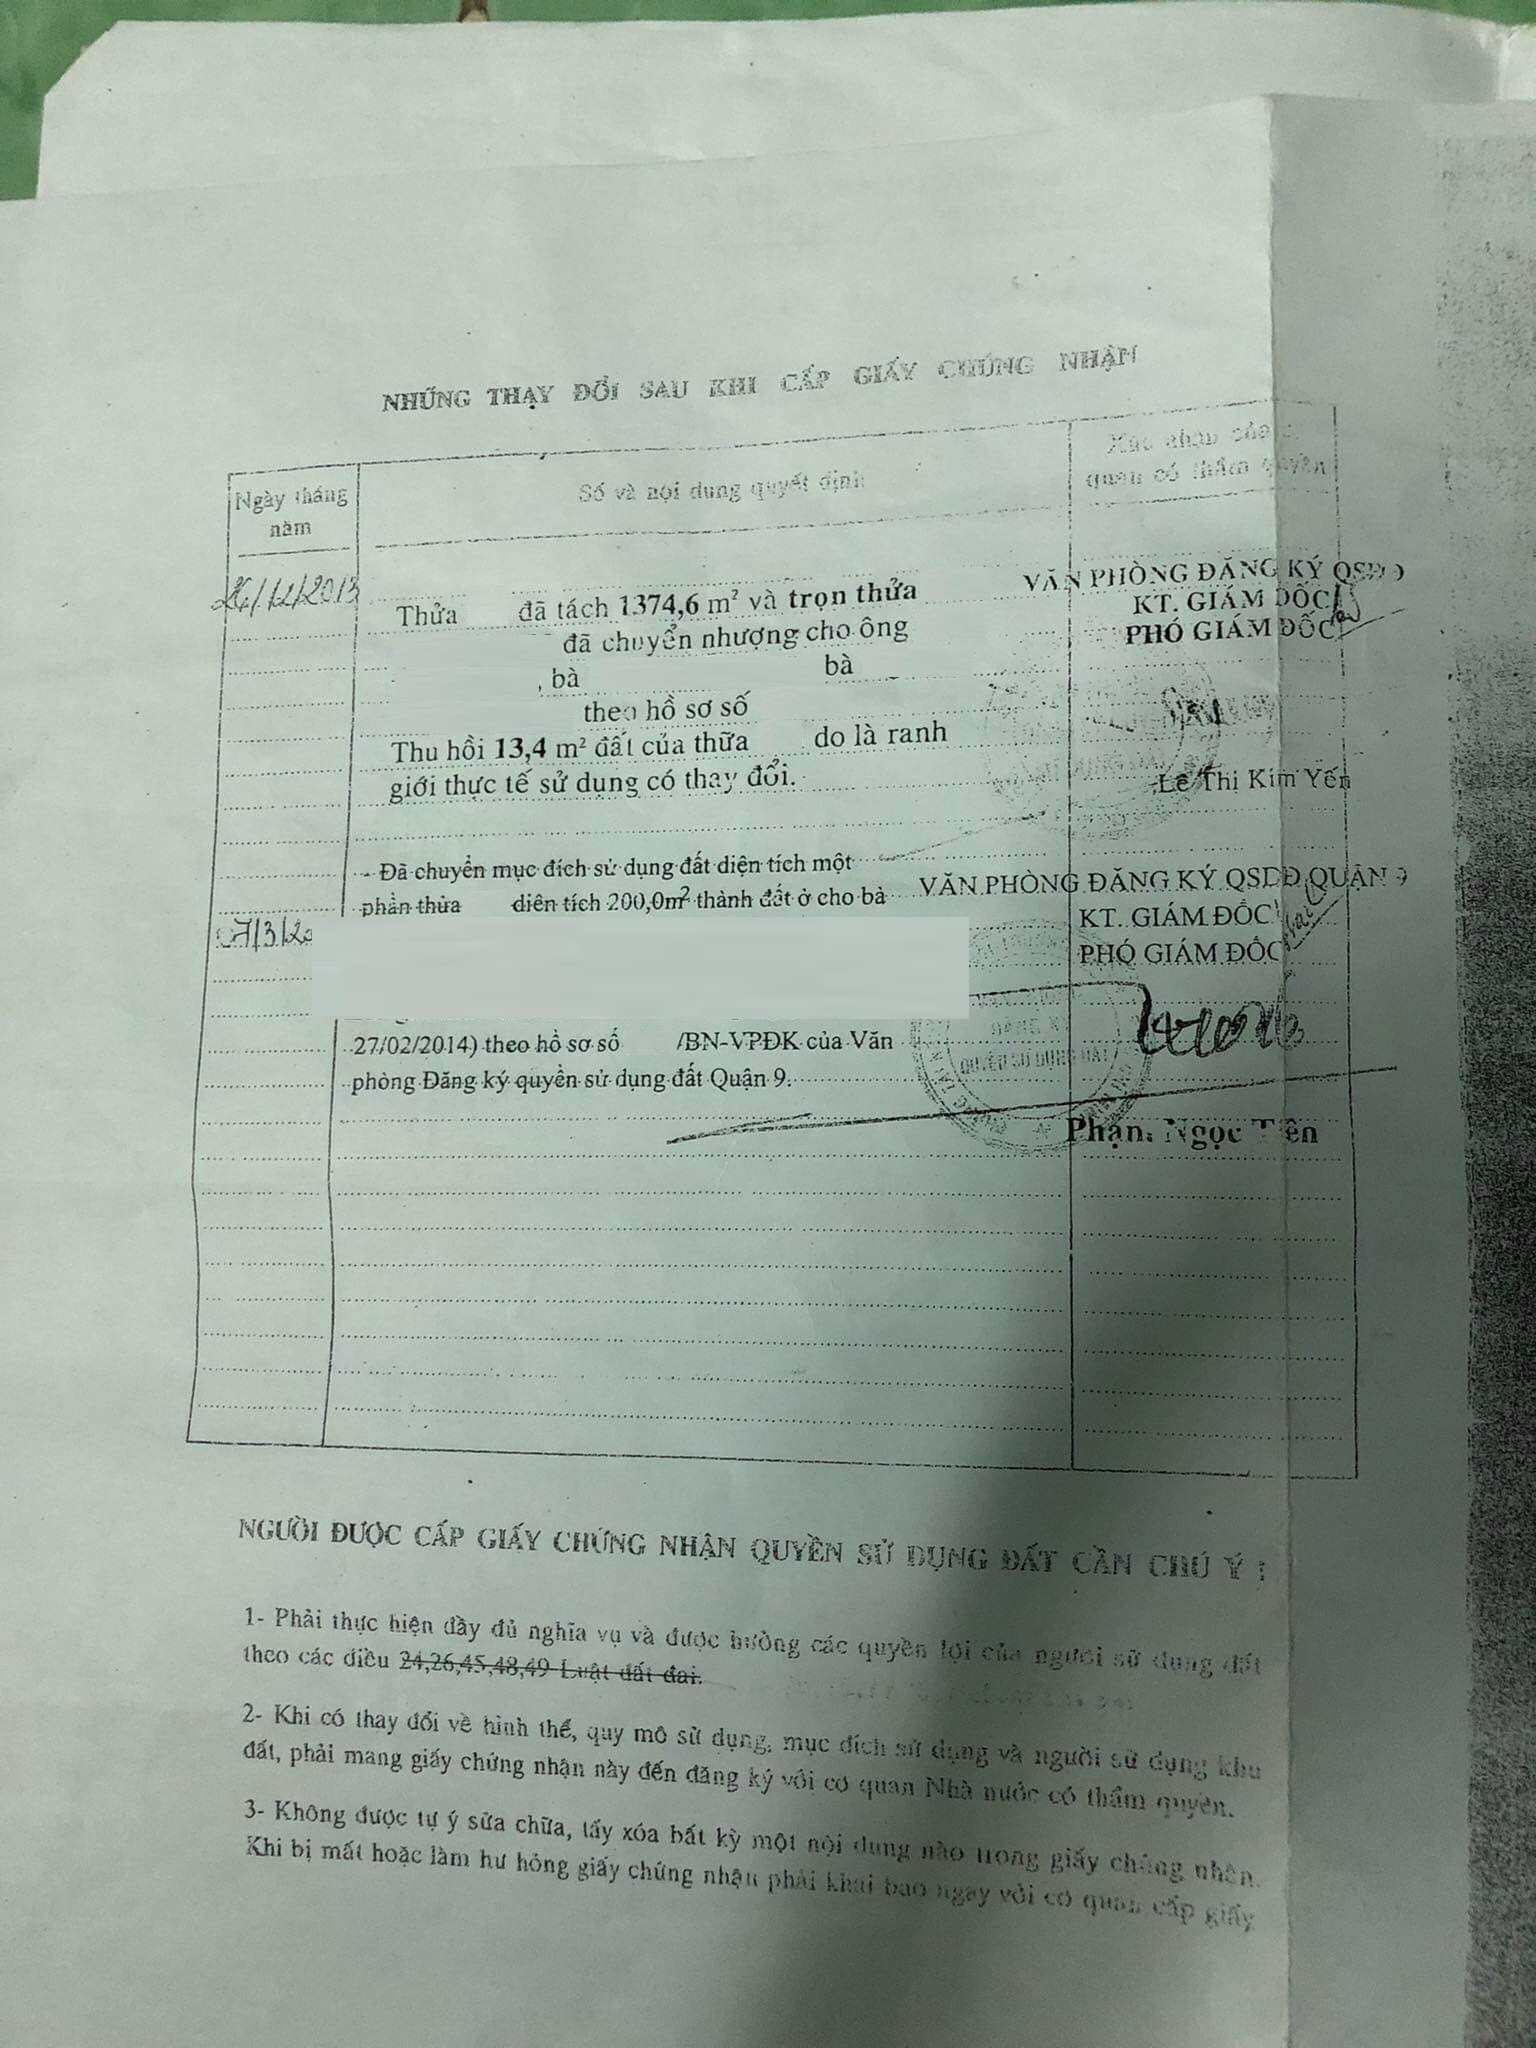 NHỮNG THAY ĐỔI SAU KHI CẤP GIẤY CHỨNG NHẬN
Ngày tháng năm
Số và nội dung quyết định
Xác nhận của
quan có thẩm quyền
26/12/2013
Thửa đã tách 1374,6 m² và trọn thửa
đã chuyển nhượng cho ông
, bà bà
theo hồ sơ số
Thu hồi 13,4 m² đất của thửa do là ranh
giới thực tế sử dụng có thay đổi.
VĂN PHÒNG ĐĂNG KÝ QSDĐ
KT. GIÁM ĐỐC
PHÓ GIÁM ĐỐC
Lê Thị Kim Yến
- Đã chuyển mục đích sử dụng đất diện tích một
phần thửa diện tích 200,0m² thành đất ở cho bà
27/02/2014) theo hồ sơ số /BN-VPĐK của Văn
phòng Đăng ký quyền sử dụng đất Quận 9.
VĂN PHÒNG ĐĂNG KÝ QSDĐ QUẬN 9
KT. GIÁM ĐỐC
PHÓ GIÁM ĐỐC
ĐĂNG KÝ
QUYỀN SỬ DỤNG ĐẤT
Phạm Ngọc Tiên
NGƯỜI ĐƯỢC CẤP GIẤY CHỨNG NHẬN QUYỀN SỬ DỤNG ĐẤT CẦN CHÚ Ý :
1- Phải thực hiện đầy đủ nghĩa vụ và được hưởng các quyền lợi của người sử dụng đất
theo các điều 24,26,45,48,49 Luật đất đai.
2- Khi có thay đổi về hình thể, quy mô sử dụng, mục đích sử dụng và người sử dụng khu
đất, phải mang giấy chứng nhận này đến đăng ký với cơ quan Nhà nước có thẩm quyền.
3- Không được tự ý sửa chữa, tẩy xóa bất kỳ một nội dung nào trong giấy chứng nhận.
Khi bị mất hoặc làm hư hỏng giấy chứng nhận phải khai báo ngay với cơ quan cấp giấy